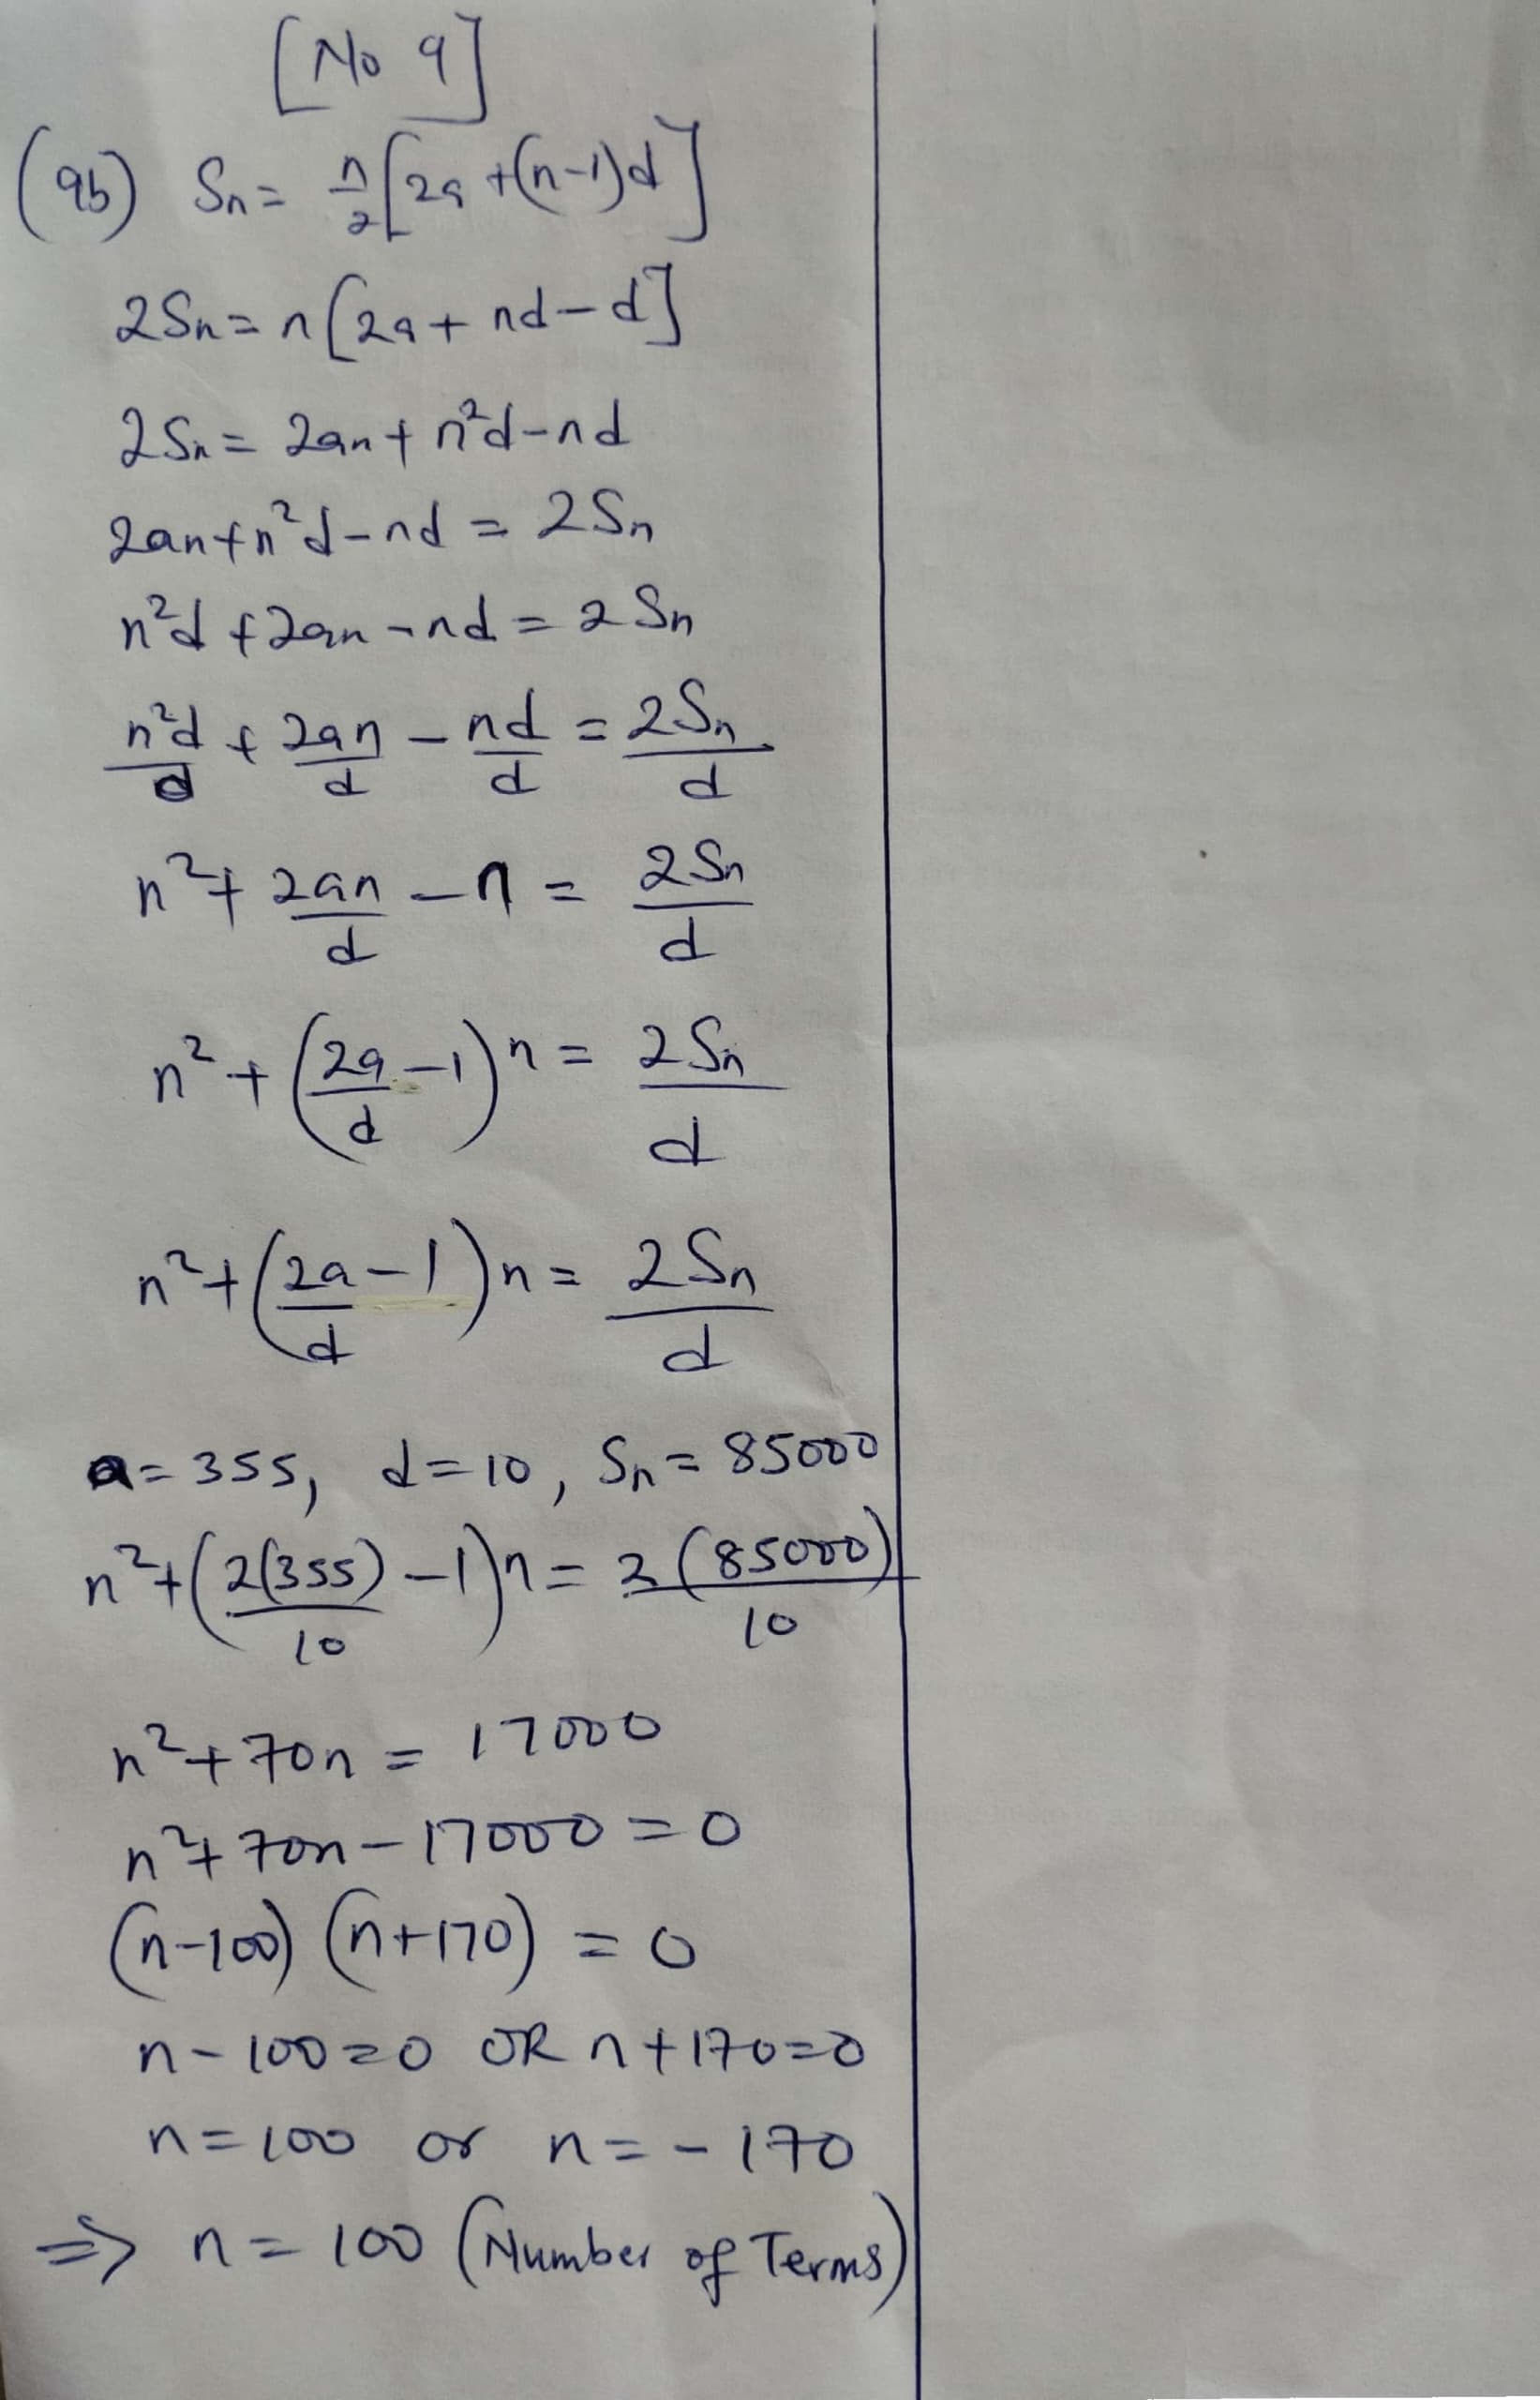 [No 9]
(9b) Sn = n/2 [2a + (n-1)d]
2Sn = n[2a + nd - d]
2Sn = 2an + n²d - nd
2an + n²d - nd = 2Sn
n²d + 2an - nd = 2Sn
n²d/d + 2an/d - nd/d = 2Sn/d
n² + 2an/d - n = 2Sn/d
n² + (2a/d - 1)n = 2Sn/d
n² + (2a/d - 1)n = 2Sn/d
a = 355, d = 10, Sn = 85000
n² + (2(355)/10 - 1)n = 2(85000)/10
n² + 70n = 17000
n² + 70n - 17000 = 0
(n-100) (n+170) = 0
n - 100 = 0 OR n + 170 = 0
n = 100 or n = - 170
⇒ n = 100 (Number of Terms)